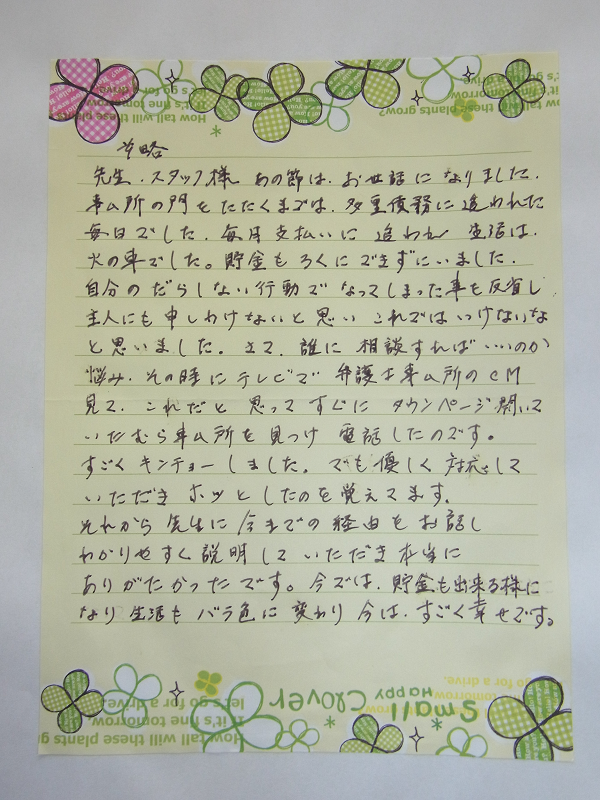 How tall will these plants grow?
If it's fine tomorrow
let's go for a drive.
草略
先生、スタッフ様 あの節は、お世話になりました。
事ム所の門をたたくまでは、多重債務に追われた
毎日でした。毎月支払いに追われ 生活は、
火の車でした。貯金もろくにできずにいました。
自分のだらしない行動でなってしまった事も反省し
主人にも申しわけないと思い これではいけないな
と思いました。さて、誰に相談すればいいのか
悩み、その時にテレビで 弁護士事ム所のCM
見て、これだと思ってすぐに タウンページ開いて
いたむら事ム所を見つけ 電話したのです。
すごくキンチョーしました。でも優しく対応して
いただき ホッとしたのを覚えてます。
それから先生に今までの経由をお話し
わかりやすく説明していただき本当に
ありがたかったです。今では、貯金も出来る様に
なり生活もバラ色に変わり今は、すごく幸せです。
Small Clover
Happy
How tall will these plants
If it's fine tomorrow
let's go for a drive.